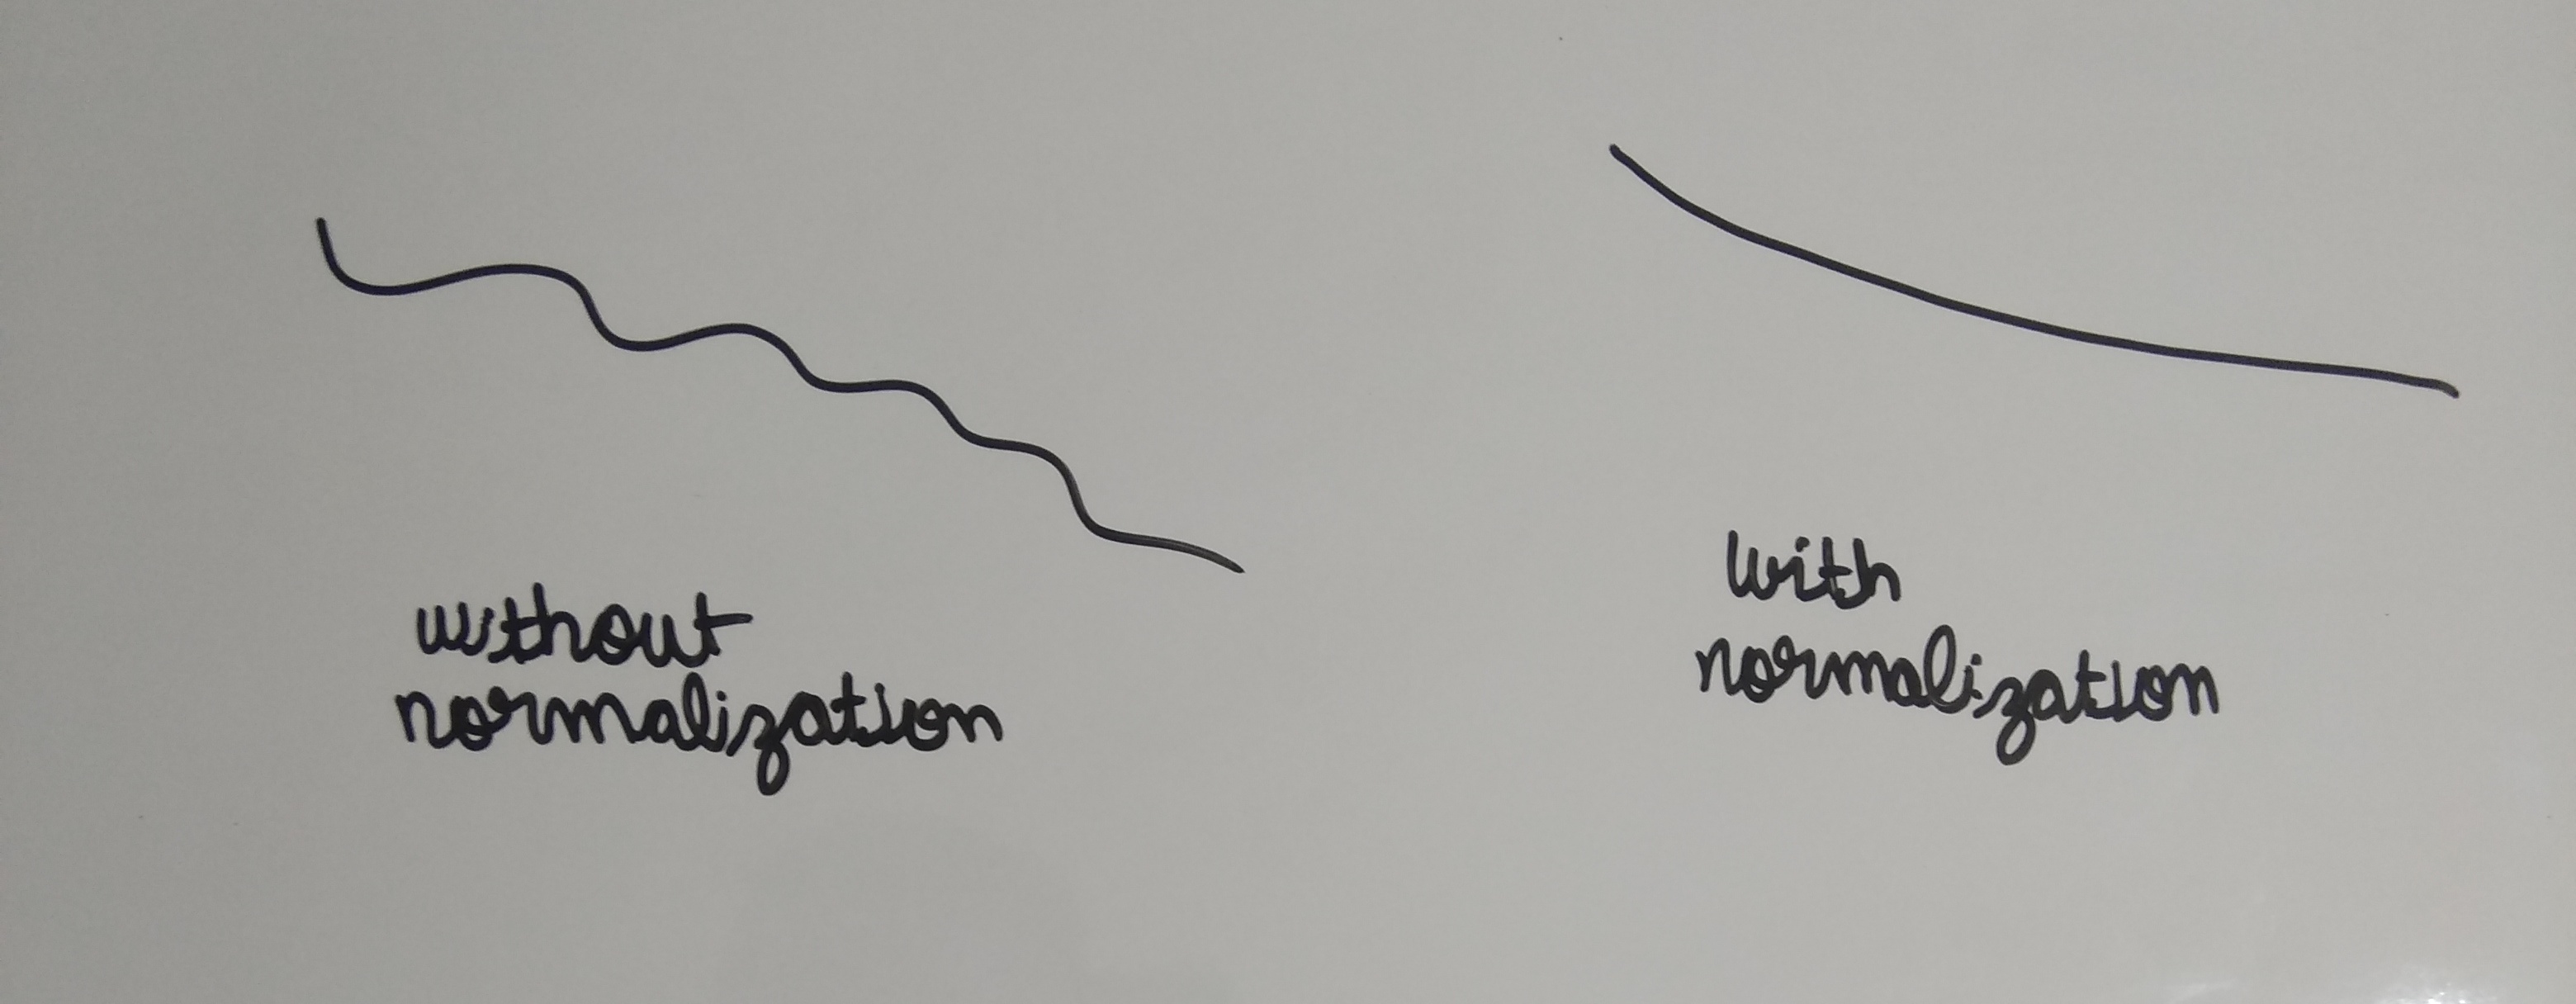 without
normalization
with
normalization